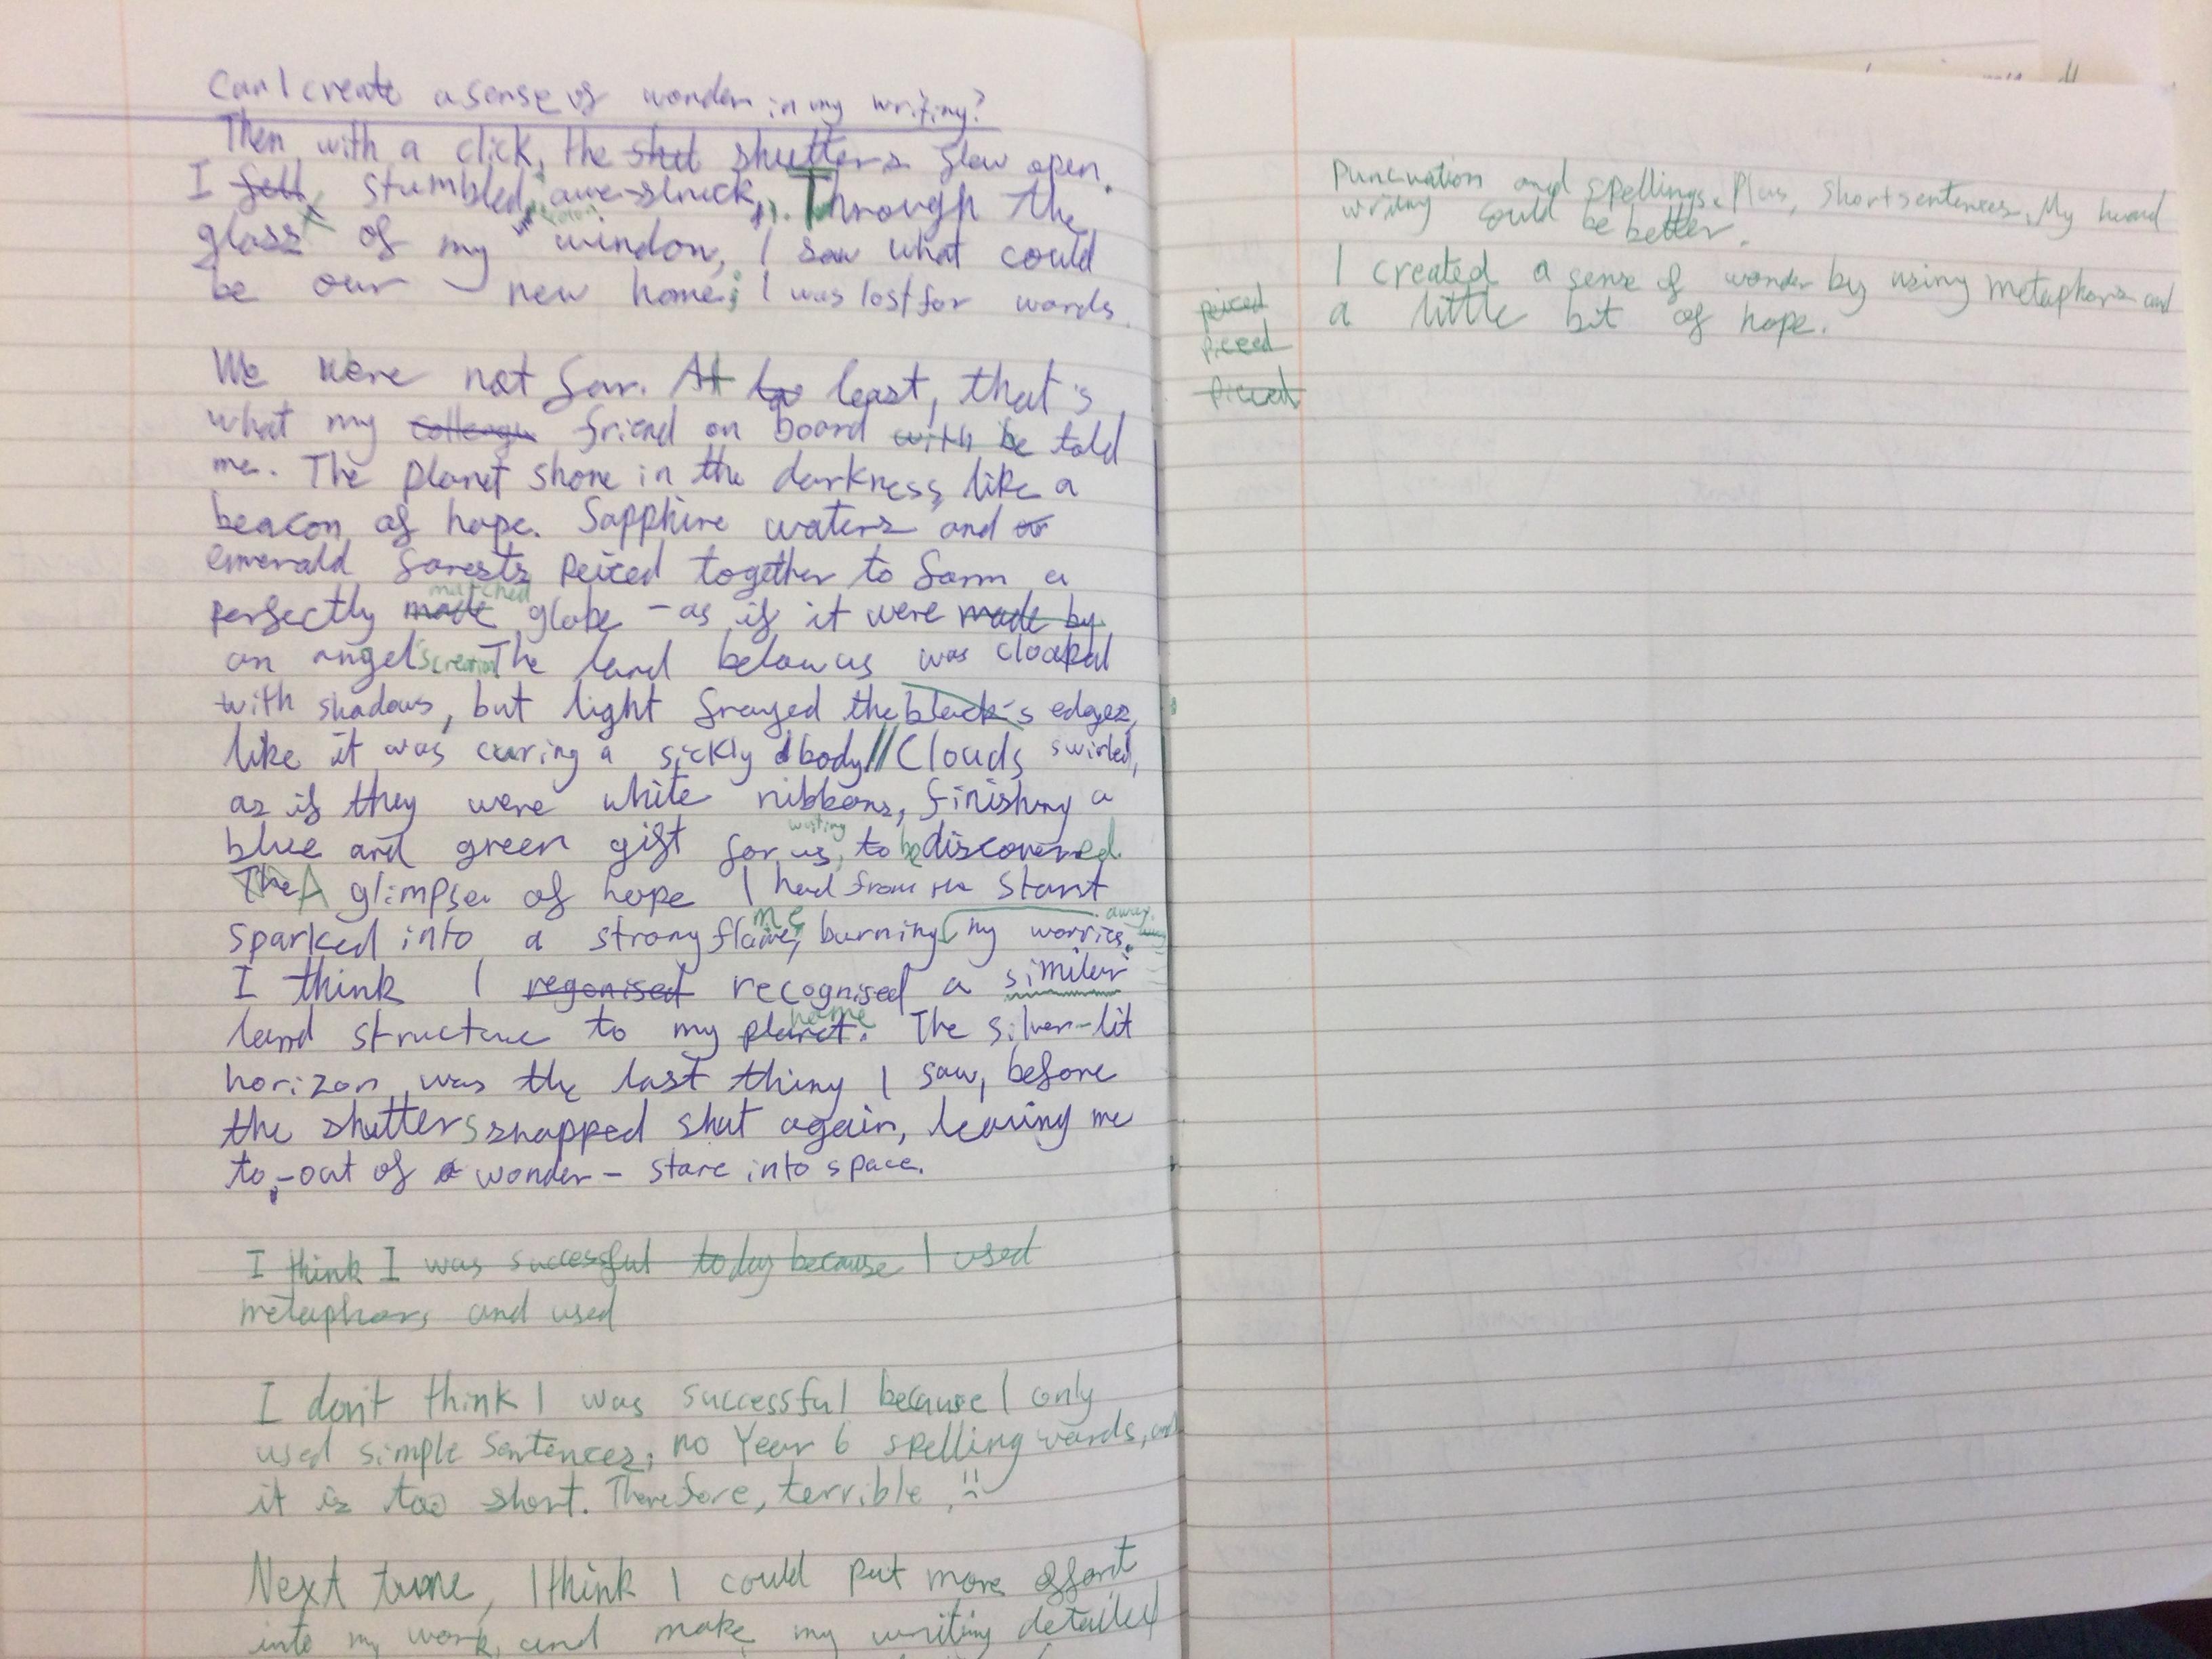 Can I create a sense of wonder in my writing?
Then, with a click, the shut shutters flew open.
I fell, stumbled, awe-struck. Through the
glass of my window, I saw what could
be our new home; I was lost for words.
We were not far. At la least, that's
what my colleagu friend on board with be told
me. The planet shone in the darkness, like a
beacon of hope. Sapphire waters and or
emerald forests peiced together to form a
matched
perfectly made globe - as if it were made by
an angel's creation The land below us was cloaked
with shadows, but light frayed the black's edges,
like it was curing a sickly body // Clouds swirled,
as if they were white ribbons, finishing a
waiting
blue and green gift for us, to be discovered.
The A glimpse of hope I had from the start
me away.
sparked into a strong flame, burning my worries.
I think I regonised recognised a similar
home
land structure to my planet. The silver-lit
horizon was the last thing I saw, before
the shutters snapped shut again, leaving me
to -out of a wonder- stare into space.
I think I was successful today because I used
metaphors and used
I don't think I was successful because I only
used simple sentences, no Year 6 spelling words, and
it is too short. Therefore, terrible
Next time, I think I could put more effort
into my work, and make my writing detailed
Puncuation and spellings. Plus, short sentences. My hand
writing could be better.
I created a sense of wonder by using metaphors and
a little bit of hope.
peiced
pieced